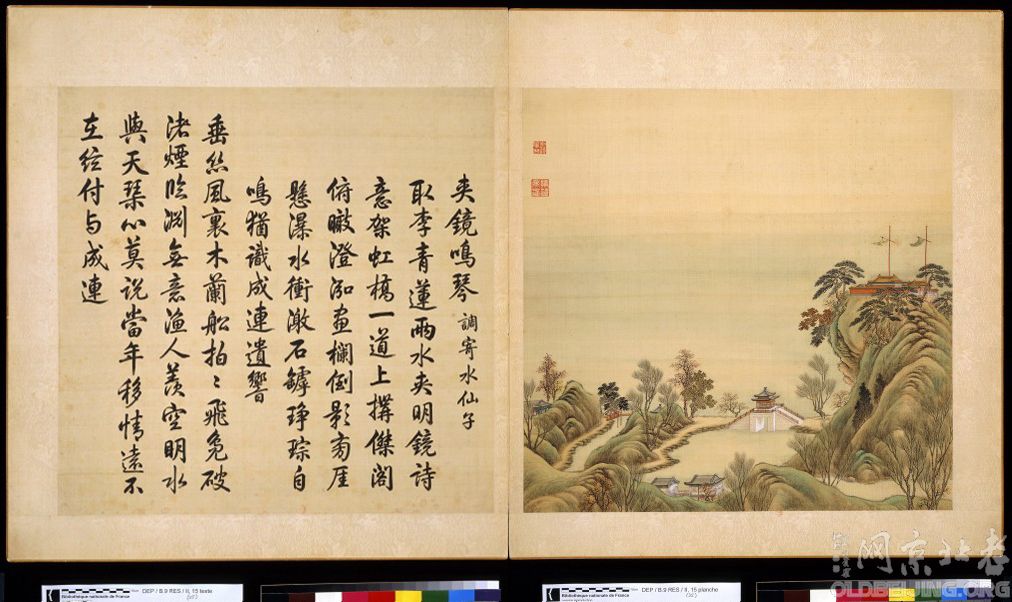 夾鏡鳴琴 調寄水仙子
取李青蓮兩水夾明鏡詩
意架虹橋一道上搆傑閣
俯瞰澄泓畫欄倒影旁厓
懸瀑水衝激石罅琤琮自
鳴猶識成連遺響
垂絲風裏木蘭船拍〻飛鳧破
渚煙臨淵無意漁人羨空明水
與天琴心莫說當年移情遠不
在絃付与成連
Bibliothèque nationale de France
DEP / B.9 RES / II, 15 texte
DEP / B.9 RES / II, 15 planche
老北京网
OLDBEIJING.ORG